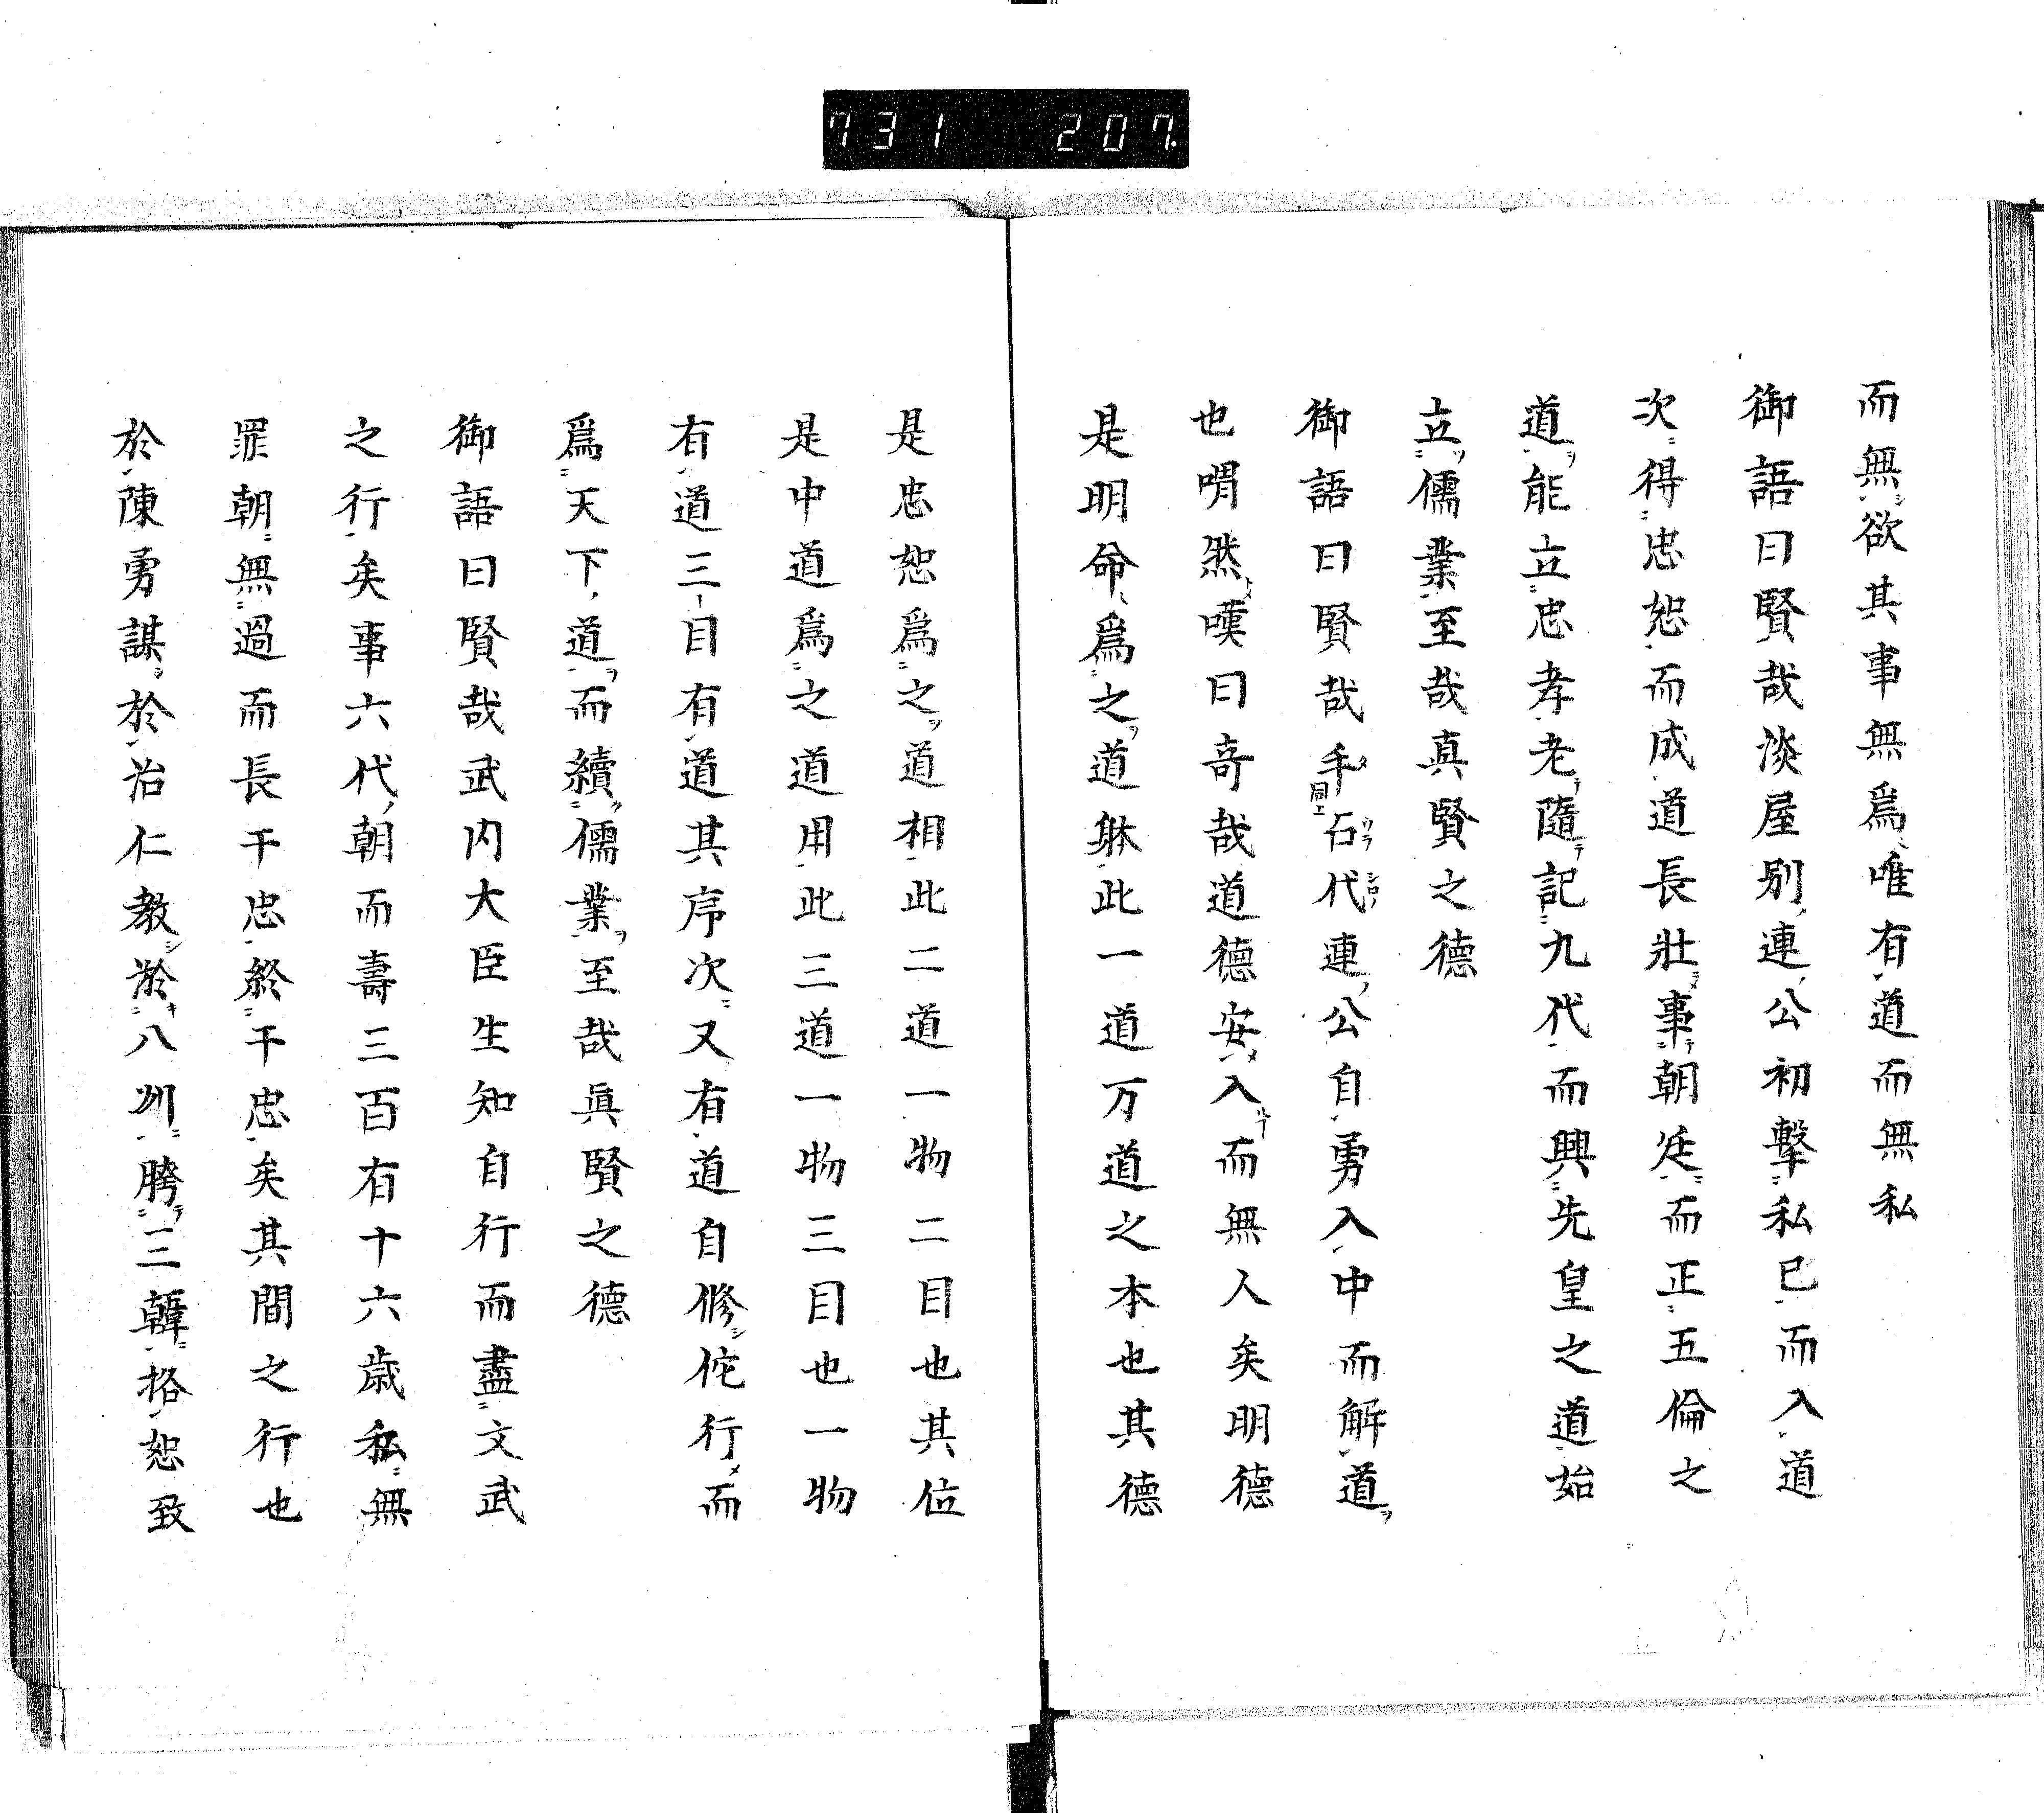 731 207
而無欲其事無爲唯有道而無私
御語曰賢哉淡屋別連公初擊私已而入道
次得忠恕而成道長壯事朝廷而正五倫之
道能立忠孝老隨記九代而興先皇之道始
立儒業至哉真賢之德
御語曰賢哉手同上石代連公自勇入中而解道
也喟然嘆曰奇哉道德安入而無人矣明德
是明命爲之道躰此一道万道之本也其德
是忠恕爲之道相此二道一物二目也其位
是中道爲之道用此三道一物三目也一物
有道三目有道其序次又有道自修佗行而
爲天下道而續儒業至哉眞賢之德
御語曰賢哉武内大臣生知自行而盡文武
之行矣事六代朝而壽三百有十六歲私無
罪朝無過而長干忠終干忠矣其間之行也
於陳勇謀於治仁教於八州勝三韓格恕致